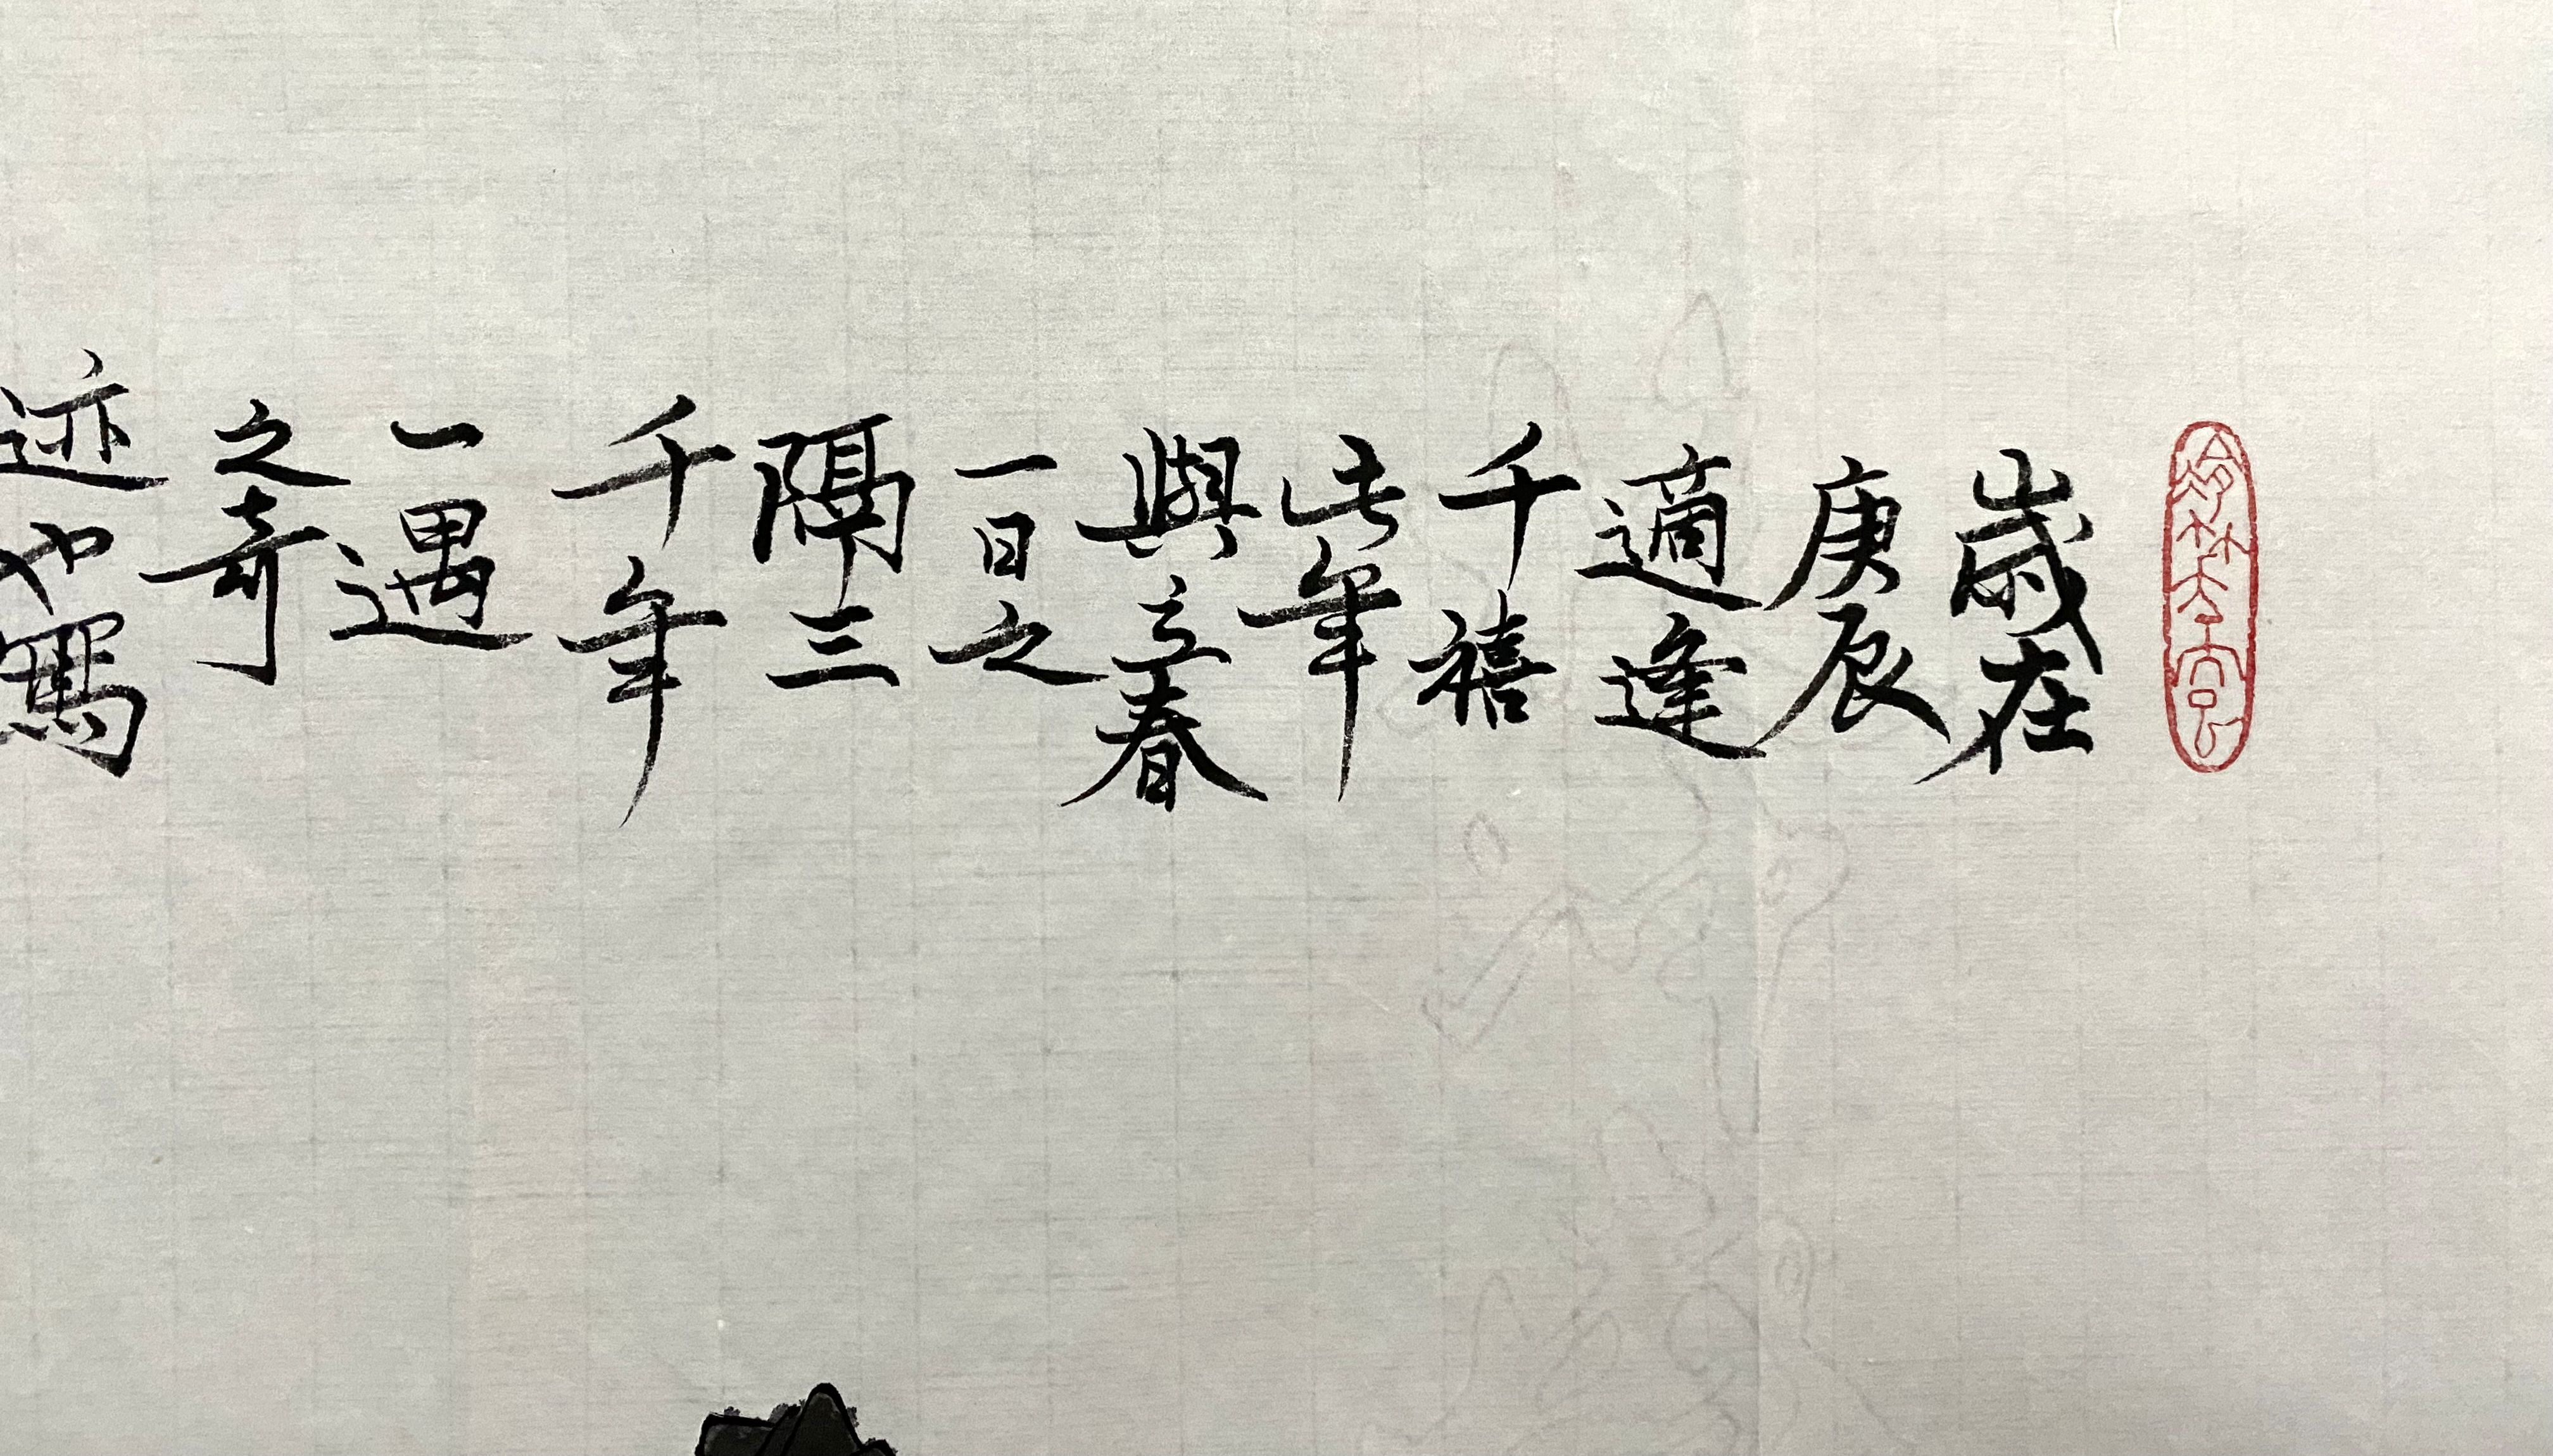 歲在
庚辰
適逢
千禧
此年
與立春
一日之
隔三
千年
一遇
之奇
迹也